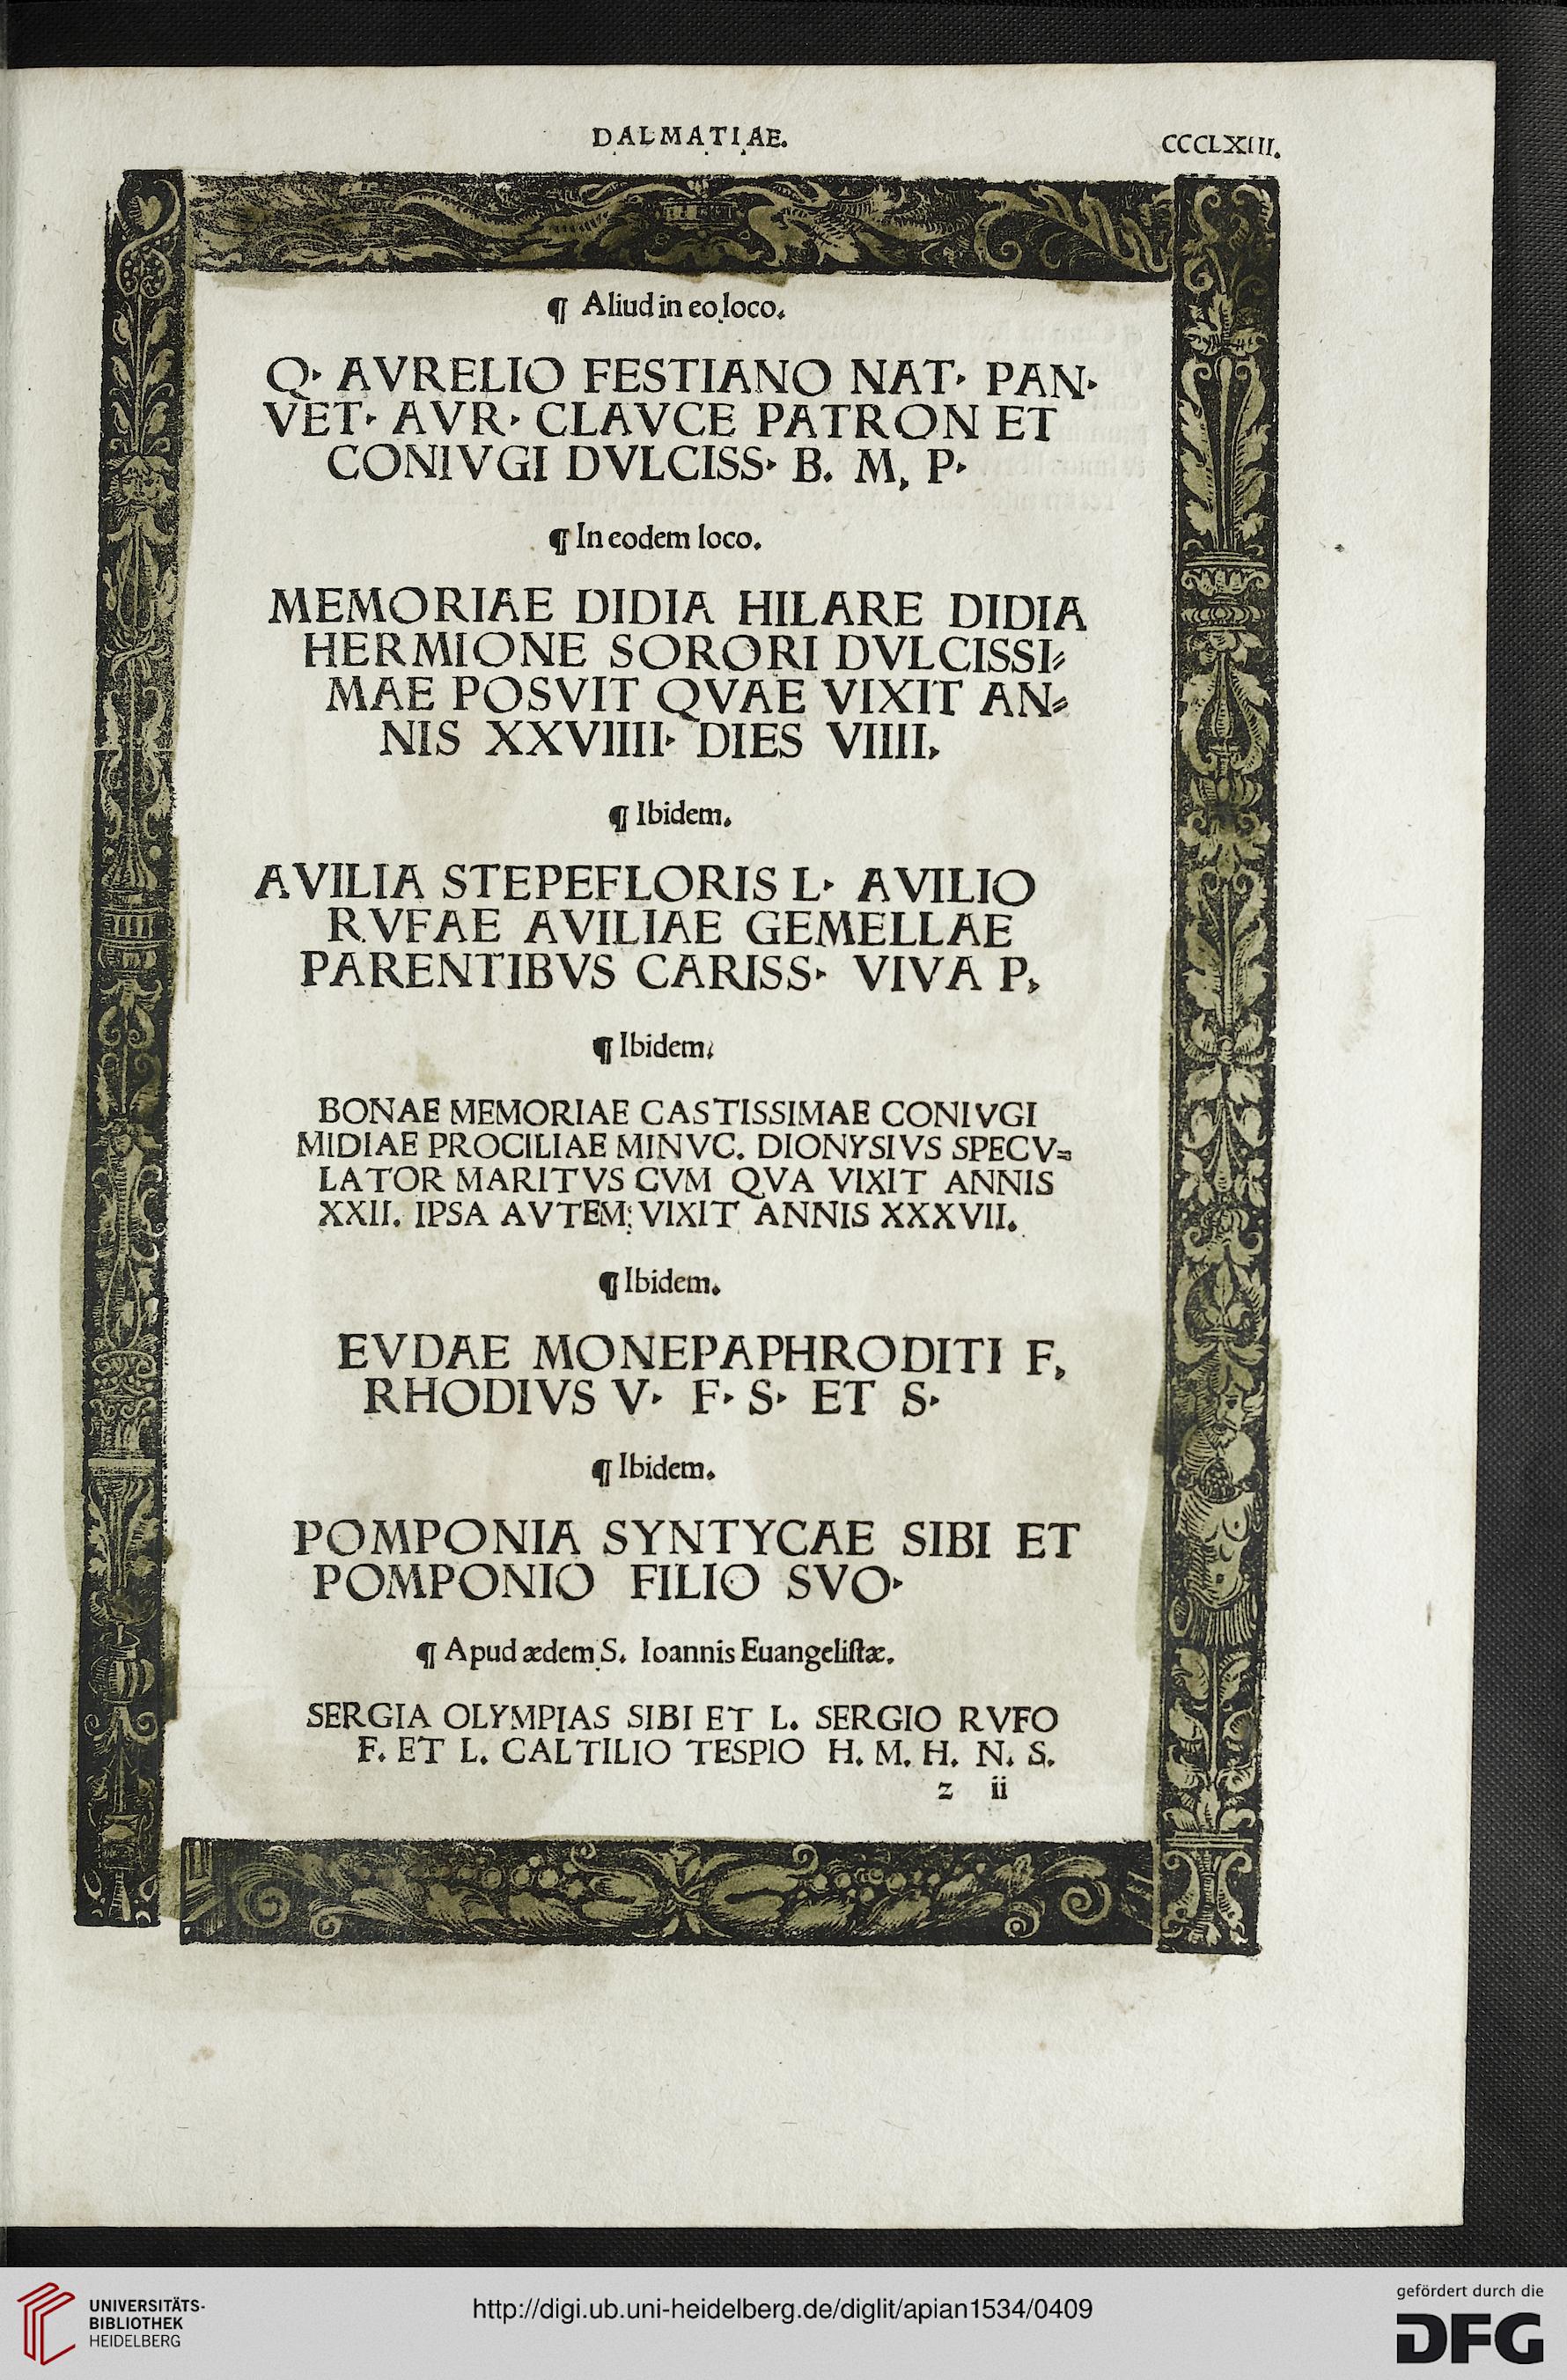 DALMATIAE.
CCCLXIII.
¶ Aliud in eo loco.
Q· AVRELIO FESTIANO NAT· PAN·
VET· AVR· CLAVCE PATRON ET
CONIVGI DVLCISS· B. M, P·
¶ In eodem loco.
MEMORIAE DIDIA HILARE DIDIA
HERMIONE SORORI DVLCISSI⸗
MAE POSVIT QVAE VIXIT AN⸗
NIS XXVIIII· DIES VIIII,
¶ Ibidem.
AVILIA STEPEFLORIS L· AVILIO
RVFAE AVILIAE GEMELLAE
PARENTIBVS CARISS· VIVA P,
¶ Ibidem.
BONAE MEMORIAE CASTISSIMAE CONIVGI
MIDIAE PROCILIAE MINVC. DIONYSIVS SPECV=
LATOR MARITVS CVM QVA VIXIT ANNIS
XXII. IPSA AVTEM: VIXIT ANNIS XXXVII.
¶ Ibidem.
EVDAE MONEPAPHRODITI F,
RHODIVS V· F· S· ET S·
¶ Ibidem.
POMPONIA SYNTYCAE SIBI ET
POMPONIO FILIO SVO·
¶ Apud ædem S. Ioannis Euangeliſtæ.
SERGIA OLYMPIAS SIBI ET L. SERGIO RVFO
F. ET L. CALTILIO TESPIO H. M. H. N. S.
z ii
UNIVERSITÄTS-
BIBLIOTHEK
HEIDELBERG
http://digi.ub.uni-heidelberg.de/diglit/apian1534/0409
gefördert durch die
DFG